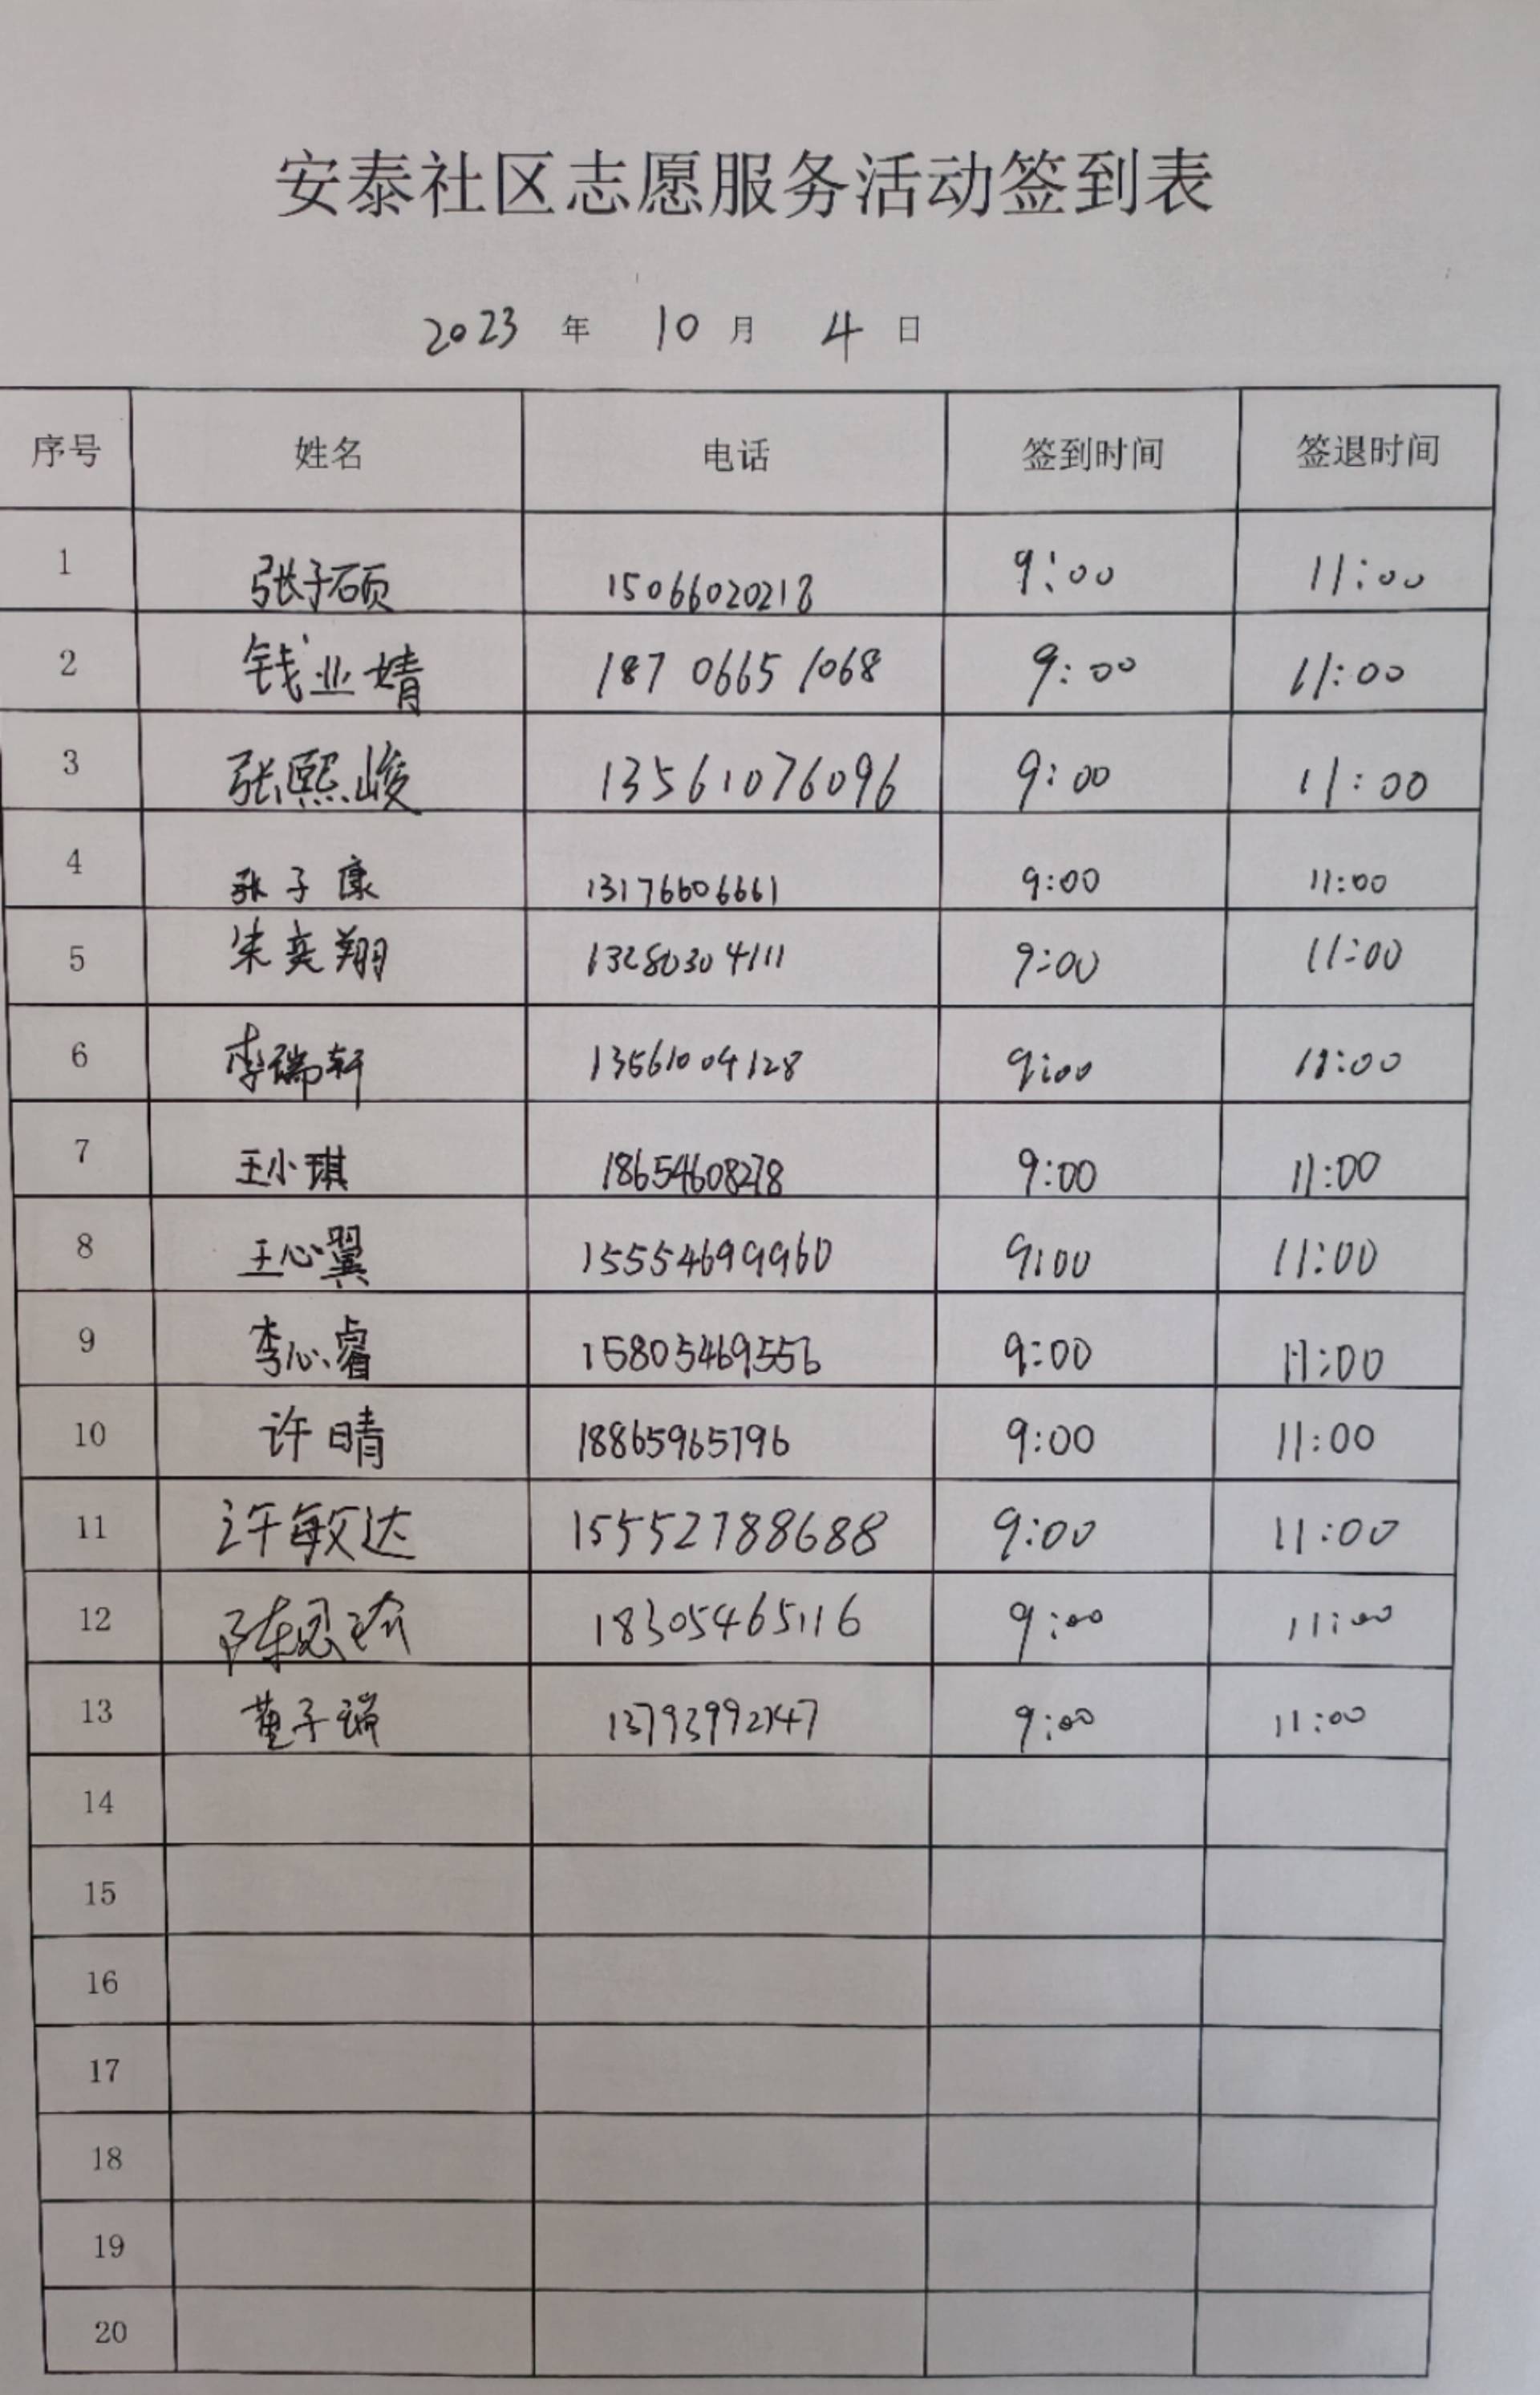 安泰社区志愿服务活动签到表
2023 年 10 月 4 日
序号 姓名 电话 签到时间 签退时间
1 张子硕 15066020218 9:00 11:00
2 钱业婧 187 0665 1068 9:00 11:00
3 张熙峻 13561076096 9:00 11:00
4 张子康 13176606661 9:00 11:00
5 朱奕翔 13280304111 9:00 11:00
6 李瑞轩 13561004128 9:00 11:00
7 王小琪 18654608278 9:00 11:00
8 王心翼 15554699960 9:00 11:00
9 李心睿 15805469556 9:00 11:00
10 许晴 18865965796 9:00 11:00
11 许敏达 15552788688 9:00 11:00
12 陈思瑜 18305465116 9:00 11:00
13 董子瑞 13793992747 9:00 11:00
14
15
16
17
18
19
20